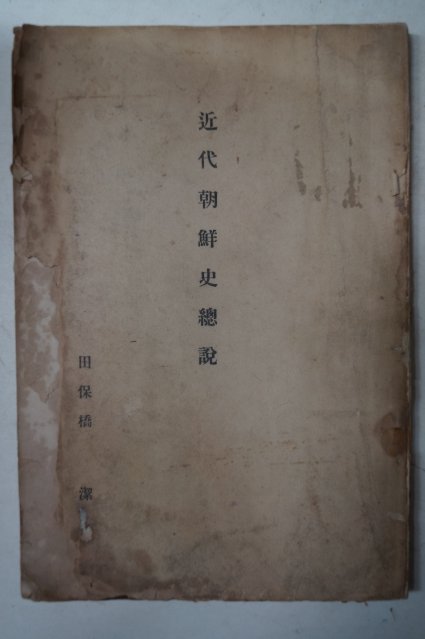 近代朝鮮史總說
田保橋 潔